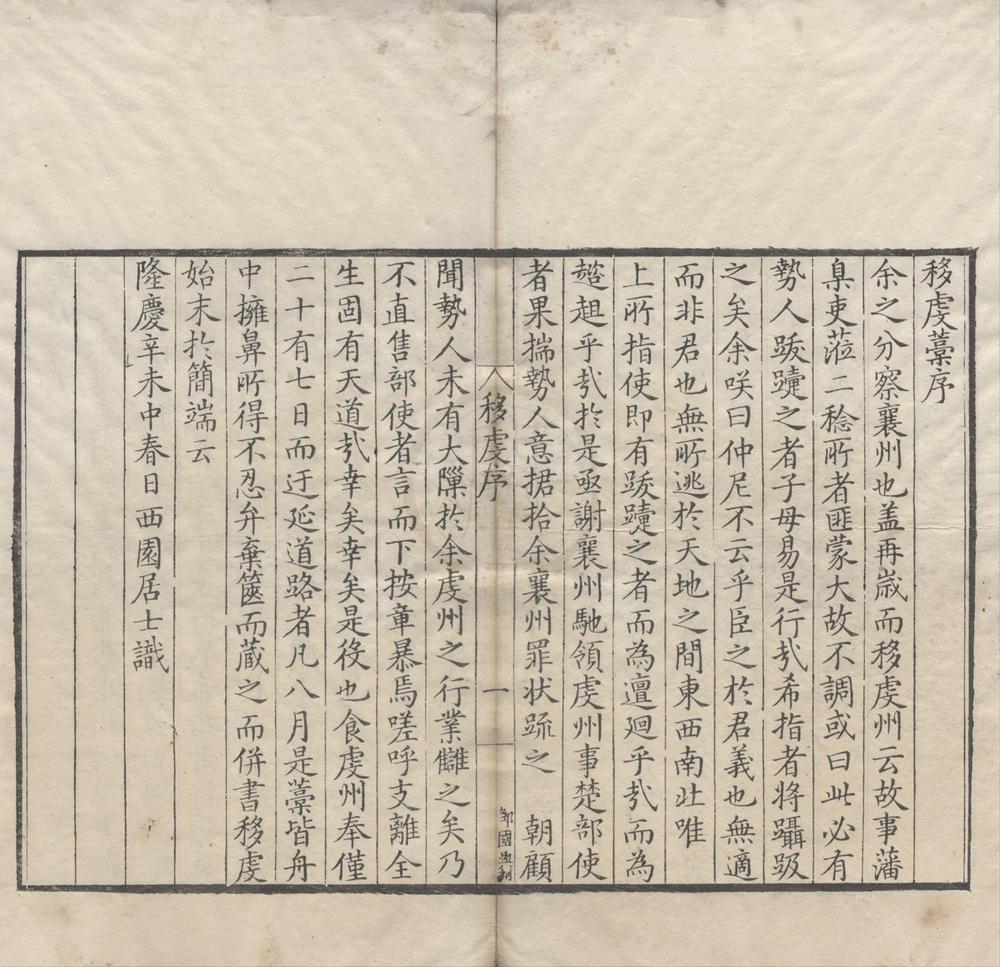 移虔藁序
余之分察襄州也盖再嵗而移虔州云故事藩
臬吏蒞二稔所者匪蒙大故不調或曰此必有
勢人䟦躠之者子毋易是行㢤希指者將躡跋
之矣余咲曰仲尼不云乎臣之於君義也無適
而非君也無所逃於天地之間東西南北唯
上所指使即有䟦躠之者而為邅廻乎㢤而為
趦趄乎㢤於是亟謝襄州馳領虔州事楚部使
者果揣勢人意捃拾余襄州罪状䟽之　朝顧
聞勢人未有大隟於余虔州之行業讎之矣乃
不直售部使者言而下按章暴焉嗟呼支離全
生固有天道㢤幸矣幸矣是役也食虔州奉僅
二十有七日而迂延道路者凡八月是藁皆舟
中擁鼻所得不忍弁棄篋而藏之而併書移虔
始末扵簡端云
隆慶辛未中春日西園居士識
移虔序
一
邹國典刻